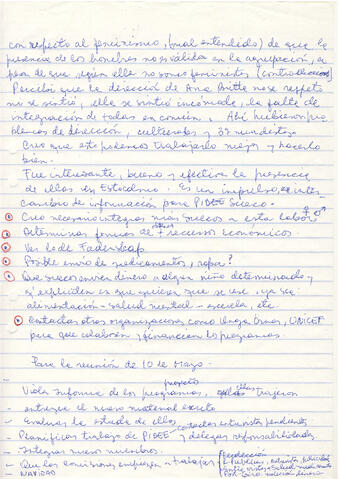 con respecto al feminismo, (mal entendido) de que la
presencia de los hombres no es válida en la agrupación, a
pesar de que según ella no somos feministas (contradicción)
Percibí que la dirección de Ana Britta no se respetó
no se sintió, ella se sintió incomoda, la falta de
integración de todas en común. Ahí hubieron pro
blemas de dirección, culturales y 3er mundistas
Creo que esto podemos trabajarlo mejor y hacerlo
bien.
Fue interesante, bueno y efectiva la presencia
de ellas en Estocolmo. Es un impulso, es inter
cambio de información para PIDEE Suecia.
Creo necesario integrar más suecos a esta labor
Determinar formas de recursos económicos.
Ver lo de Fadderskap
Posible envío de medicamentos, ropa?
Que suecos envien dinero a algún niño determinado y
q' expliciten en que quieren que se use, ya sea
alimentación - salud mental - escuela, etc.
Contactar otras organizaciones como Unga Örnar, UNICEF
para que colaboren y financien los programas.
Para la reunión de 10 de Mayo.
- Viola informe de los programas, proyecto ellas trajeron
- entregue el nuevo material escrito
- Evaluar la estadía de ellas
- Planificar trabajo de PIDEE y delegar responsabilidades
- Integrar nuevos miembros.
- Que las comisiones empiecen a trabajar
- NAVIDAD